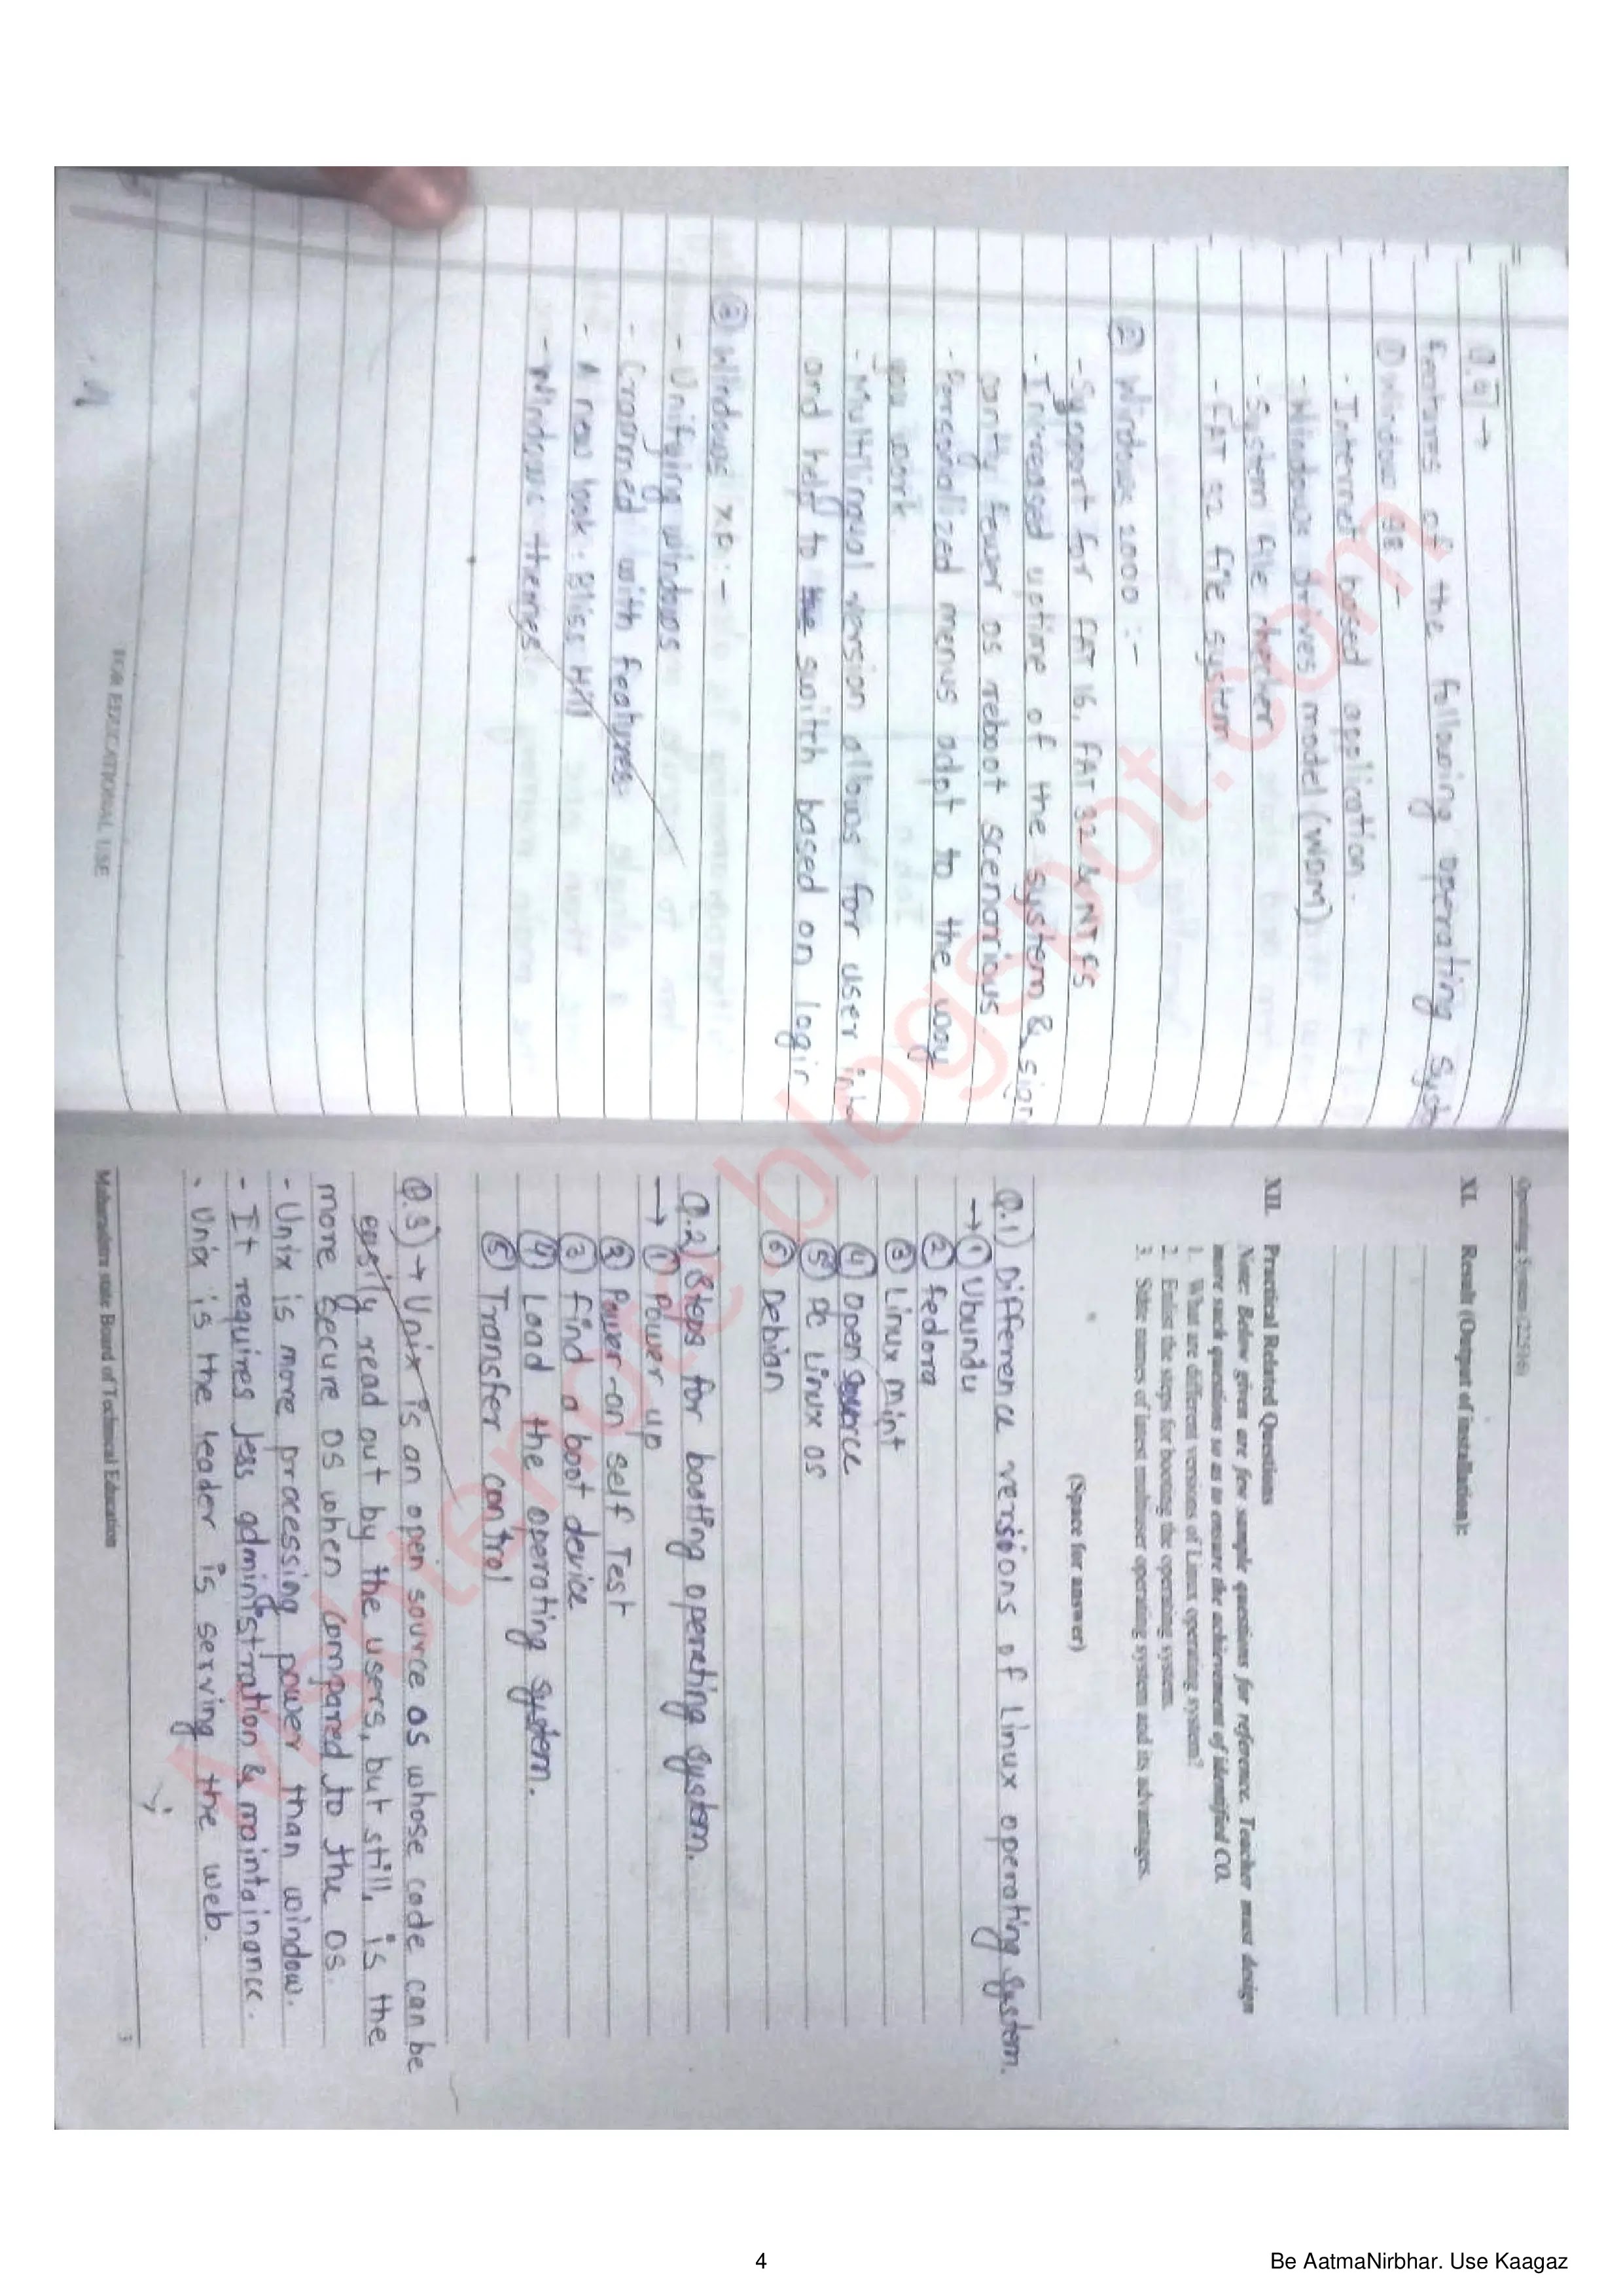 Q.4] →
features of the following operating syste
① Window 98 –
- Internet based application.
- Windows drives model (WDM)
- System file checker
- FAT 32 file system
② Windows 2000 :-
- Support for FAT 16, FAT 32 & NTFS
- Increased uptime of the system & sign
cantly fewer os reboot scenarious
- Personalized menus adpt to the way
you work
- Multilingual version allows for user
and help to the switch based on login
③ Windows XP :-
- Unifying windows
- Crammed with features
- A new look. Bliss Hill
- Windows themes
FOR EDUCATIONAL USE
Operating System (22516)
XI. Result (Output of installation):
XII. Practical Related Questions
Note: Below given are few sample questions for reference. Teacher must design
more such questions so as to ensure the achievement of identified CO.
1. What are different versions of Linux operating system?
2. Enlist the steps for booting the operating system.
3. State names of latest multiuser operating system and its advantages.
(Space for answer)
Q.1) Difference versions of Linux operating System.
→ ① Ubundu
② fedora
③ Linux mint
④ Open Source
⑤ PC Linux OS
⑥ Debian
Q.2) Steps for booting operating system.
→ ① Power up
② Power-on self Test
③ find a boot device
④ Load the operating system.
⑤ Transfer control
Q.3) → Unix is an open source OS whose code can be
easily read out by the users, but still, is the
more Secure OS when compared to the OS.
- Unix is more processing power than window.
- It requires less administration & maintainance.
- Unix is the leader is serving the web.
Maharashtra state Board of Technical Education
3
blogspot.com
4
Be AatmaNirbhar. Use Kaagaz